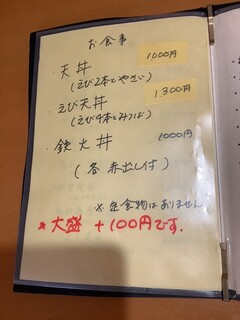 お食事
天丼 1000円
(えび2本とやさい)
えび天丼 1,300円
(えび4本とみつば)
鉄火丼 1000円
(各赤出し付)
※定食物はありません
*大盛 +100円です.